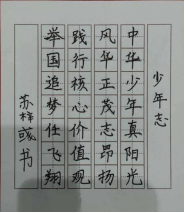 少年志
中华少年真阳光
风华正茂志昂扬
践行核心价值观
举国追梦任飞翔
苏梓彧书